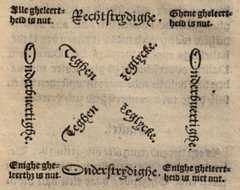 Alle gheleert-
heid is nut.
Rechtstrydighe.
Ghene gheleert-
heid is nut.
Onderbuertighe.
Teghen
zeglycke.
Teghen
zeglycke.
Onderbuertighe.
Enighe ghe-
leerthy is nut.
Onderstrydighe.
Enighe gheleert-
heid is niet nut.